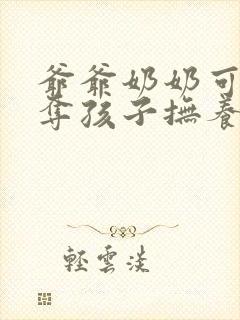 爺爺奶奶可
奪孩子撫養
輕雲淡